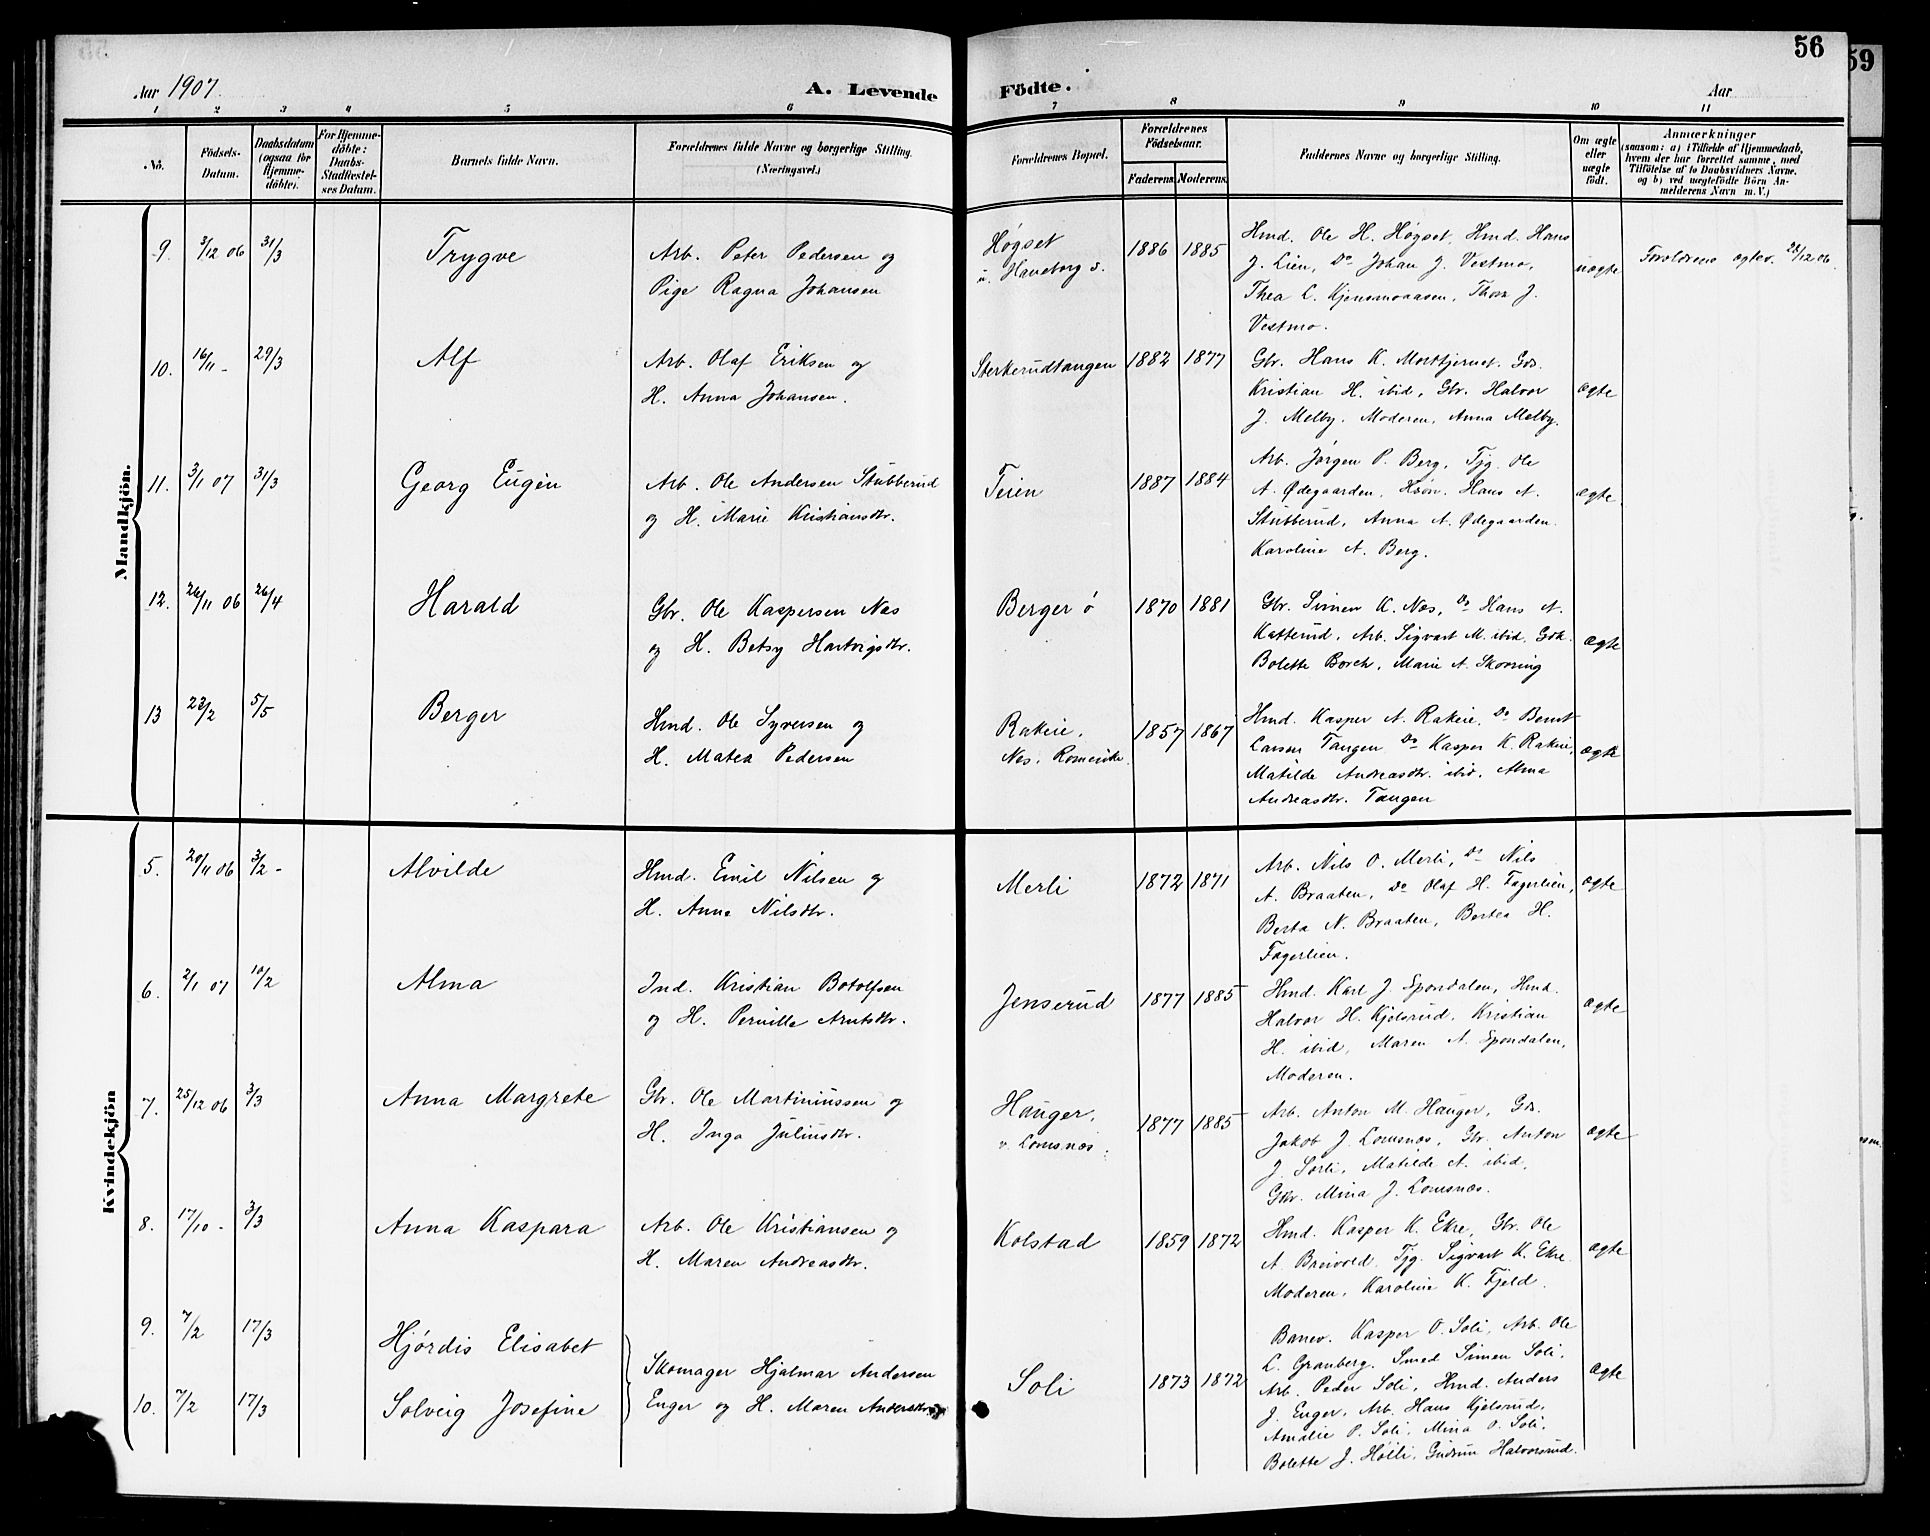 56
59
Aar 1907.
A. Levende
Födte.
Aar
1 2 3 4 5 6 7 8 9 10 11
No.
Födsels-
Datum.
Daabsdatum
(ogsaa for
Hjemme-
døbte).
For Hjemme-
døbte:
Daabs-
Stadfæstel-
ses Datum.
Barnets fulde Navn.
Forældrenes fulde Navne og borgerlige Stilling.
(Næringsvei.)
Forældrenes Bopæl.
Forældrenes
Födselsaar.
Faderens
Moderens
Faddernes Navne og borgerlige Stilling.
Om ægte
eller
uægte
født.
Anmærkninger
(saasom: a) i Tilfælde af Hjemmedaab,
hvem der har forrettet samme, med
Tilføielse af to Daabsvidners Navne.
og b) ved uægtefödte Börn An-
melderens Navn m. V.)
Mandkjön.
9. 3/12 06 31/3 Trygve
Arb. Peter Pedersen og
Pige Ragna Johansen
Høgset
u. Haneborg s.
1886 1885
Hmd. Ole H. Høgset, Hmd. Hans
J. Lien, Do Johan J. Vestmo,
Thea L. Kjensmoaasen, Thora J.
Vestmo.
uægte
Forældrene ægtev. 28/12 06.
10. 16/11 - 29/3 Alf
Arb. Olaf Eriksen og
H. Anna Johansen.
Sterkerudtangen 1882 1877
Gbr. Hans K. Mortkjernet, Gds.
Kristian H. ibid, Gbr. Halvor
J. Melby. Moderen, Anna Melby.
ægte
11. 3/1 07 31/3 Georg Eugen
Arb. Ole Andersen Stubberud
og H. Marie Kristiansdtr.
Teien 1887 1884
Arb. Jørgen P. Berg, Tjg. Ole
A. Ødegaarden, Hans A.
Stubberud, Anna A. Ødegaarden.
Karoline A. Berg.
ægte
12. 26/11 06 26/4 Harald
Gbr. Ole Kaspersen Nes
og H. Betsy Hartvigsdtr.
Berger ø 1870 1881
Gbr. Simen K. Nes, Do Hans A.
Katterud, Arb. Sigvart M. ibid. Gdk.
Bolette Borch, Marie A. Skovring
ægte
13 23/2 5/5 Berger
Hmd. Ole Syversen og
H. Matea Pedersen
Rakeie,
Nes, Romerike.
1857 1867
Hmd. Kasper A. Rakeie, Do Bernt
Larsen Tangen Do Kasper K. Rakeie,
Matilde Andreasdtr. ibid, Alma
Andreasdtr. Tangen
ægte
Kvindekjön
5. 20/11 06 3/2 - Alvilde
Hmd. Emil Nilsen og
H. Anne Nilsdtr.
Merli 1872 1871
Arb. Nils O. Merli, Do Nils
A. Braaten, Do Olaf H. Fagerlien,
Berta N. Braaten, Bertea H.
Fagerlien.
ægte
6. 2/1 07 10/2 Alma
Ind. Kristian Botolfsen
og H. Pernille Arntsdtr.
Jenserud 1877 1885
Hmd. Karl J. Spondalen, Hmd.
Halvor H. Kjelsrud, Kristian
H. ibid, Maren A. Spondalen,
Moderen.
ægte
7. 25/12 06 3/3 Anna Margrete
Gbr. Ole Martiniussen og
H. Inga Juliusdtr.
Hauger,
v. Lomsnæs.
1877 1885
Arb. Anton M. Hauger, Gds.
Jakob J. Lomsnæs, Gbr. Anton
J. Sorli, Matilde A. ibid,
Gdk. Mina J. Lomsnæs.
ægte
8. 17/10 - 3/3 Anna Kaspara
Arb. Ole Kristiansen og
H. Maren Andreasdtr.
Kolstad 1859 1872
Hmd. Kasper K. Ekre, Gbr. Ole
A. Breivold, Tjg. Sigvart K. Ekre
Moderen, Karoline K. Fjeld.
ægte
9. 7/2 17/3 Hjørdis Elisabet
10. 7/2 17/3 Solveig Josefine
Skomager Hjalmar Andersen
Enger og H. Maren Andersdtr.
Soli 1873 1872
Banev. Kasper O. Soli, Arb. Ole
L. Granberg. Smed Simen Soli,
Arb. Peder Soli, Hmd. Anders
J. Enger, Arb. Hans Kjelsrud,
Amalie P. Soli, Mina O. Soli,
Bolette J. Høili, Gudrun Halvorsrud.
ægte